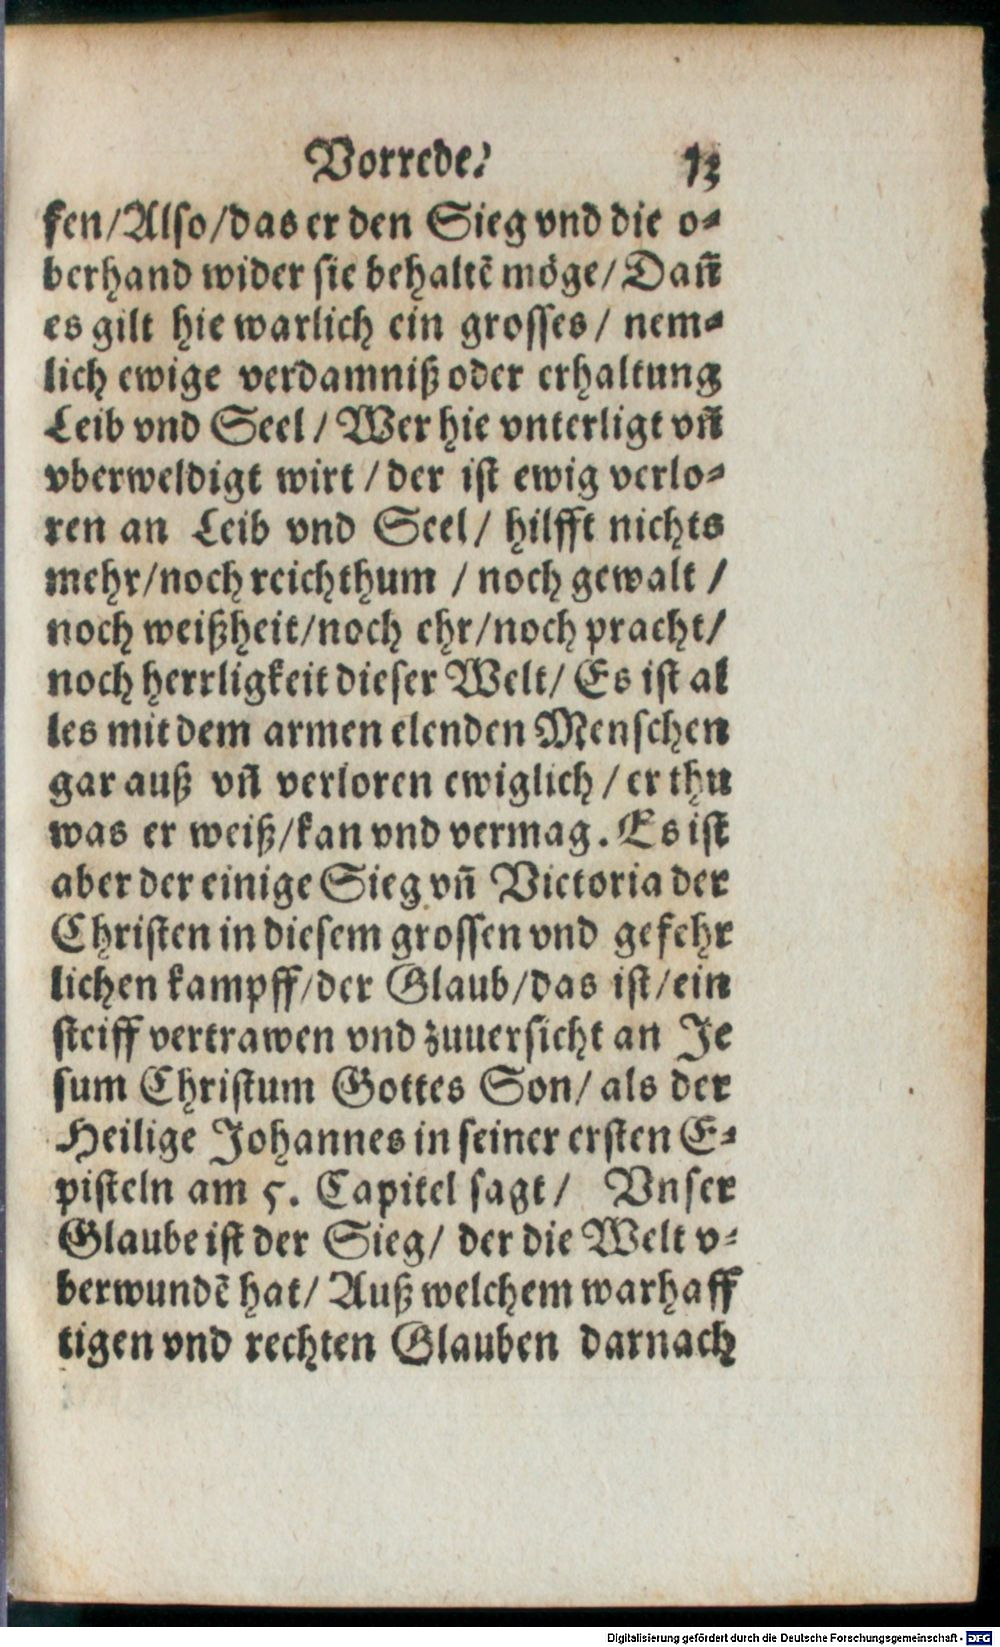 Vorrede. 13
ken/Also/das er den Sieg vnd die o-
berhand wider sie behaltē möge/Dañ
es gilt hie warlich ein grosses/ nem-
lich ewige verdamniß oder erhaltung
Leib vnd Seel/ Wer hie vnterligt vñ
vberweldigt wirt/der ist ewig verlo-
ren an Leib vnd Seel/ hilfft nichts
mehr/noch reichthum /noch gewalt/
noch weißheit/noch ehr/noch pracht/
noch herrligkeit dieser Welt/ Es ist al
les mit dem armen elenden Menschen
gar auß vñ verloren ewiglich/er thu
was er weiß/kan vnd vermag. Es ist
aber der einige Sieg vñ Victoria der
Christen in diesem grossen vnd gefehr
lichen kampff/der Glaub/das ist/ein
steiff vertrawen vnd zuuersicht an Je
sum Christum Gottes Son/ als der
Heilige Johannes in seiner ersten E-
pisteln am 5. Capitel sagt/ Vnser
Glaube ist der Sieg/ der die Welt v-
berwundē hat/ Auß welchem warhaff
tigen vnd rechten Glauben darnach
Digitalisierung gefördert durch die Deutsche Forschungsgemeinschaft - DFG